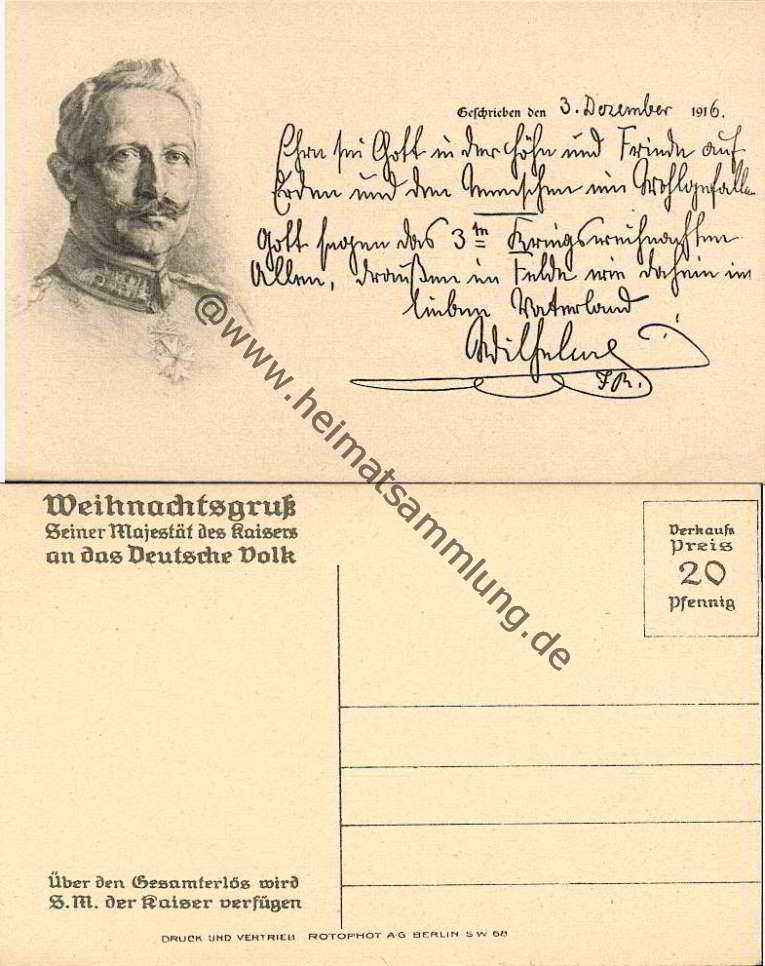 Geschrieben den 3. Dezember 1916.
Ehre sei Gott in der Höhe und Friede auf
Erden und den Menschen ein Wohlgefallen
Gott segne das 3te Kriegsweihnachten
Allen, draußen im Felde wie daheim im
lieben Vaterland
Wilhelm
I.R.
@www.heimatsammlung.de
Weihnachtsgruß
Seiner Majestät des Kaisers
an das Deutsche Volk
Verkaufs
Preis
20
Pfennig
Über den Gesamterlös wird
S.M. der Kaiser verfügen
DRUCK UND VERTRIEB ROTOPHOT A-G BERLIN SW 68